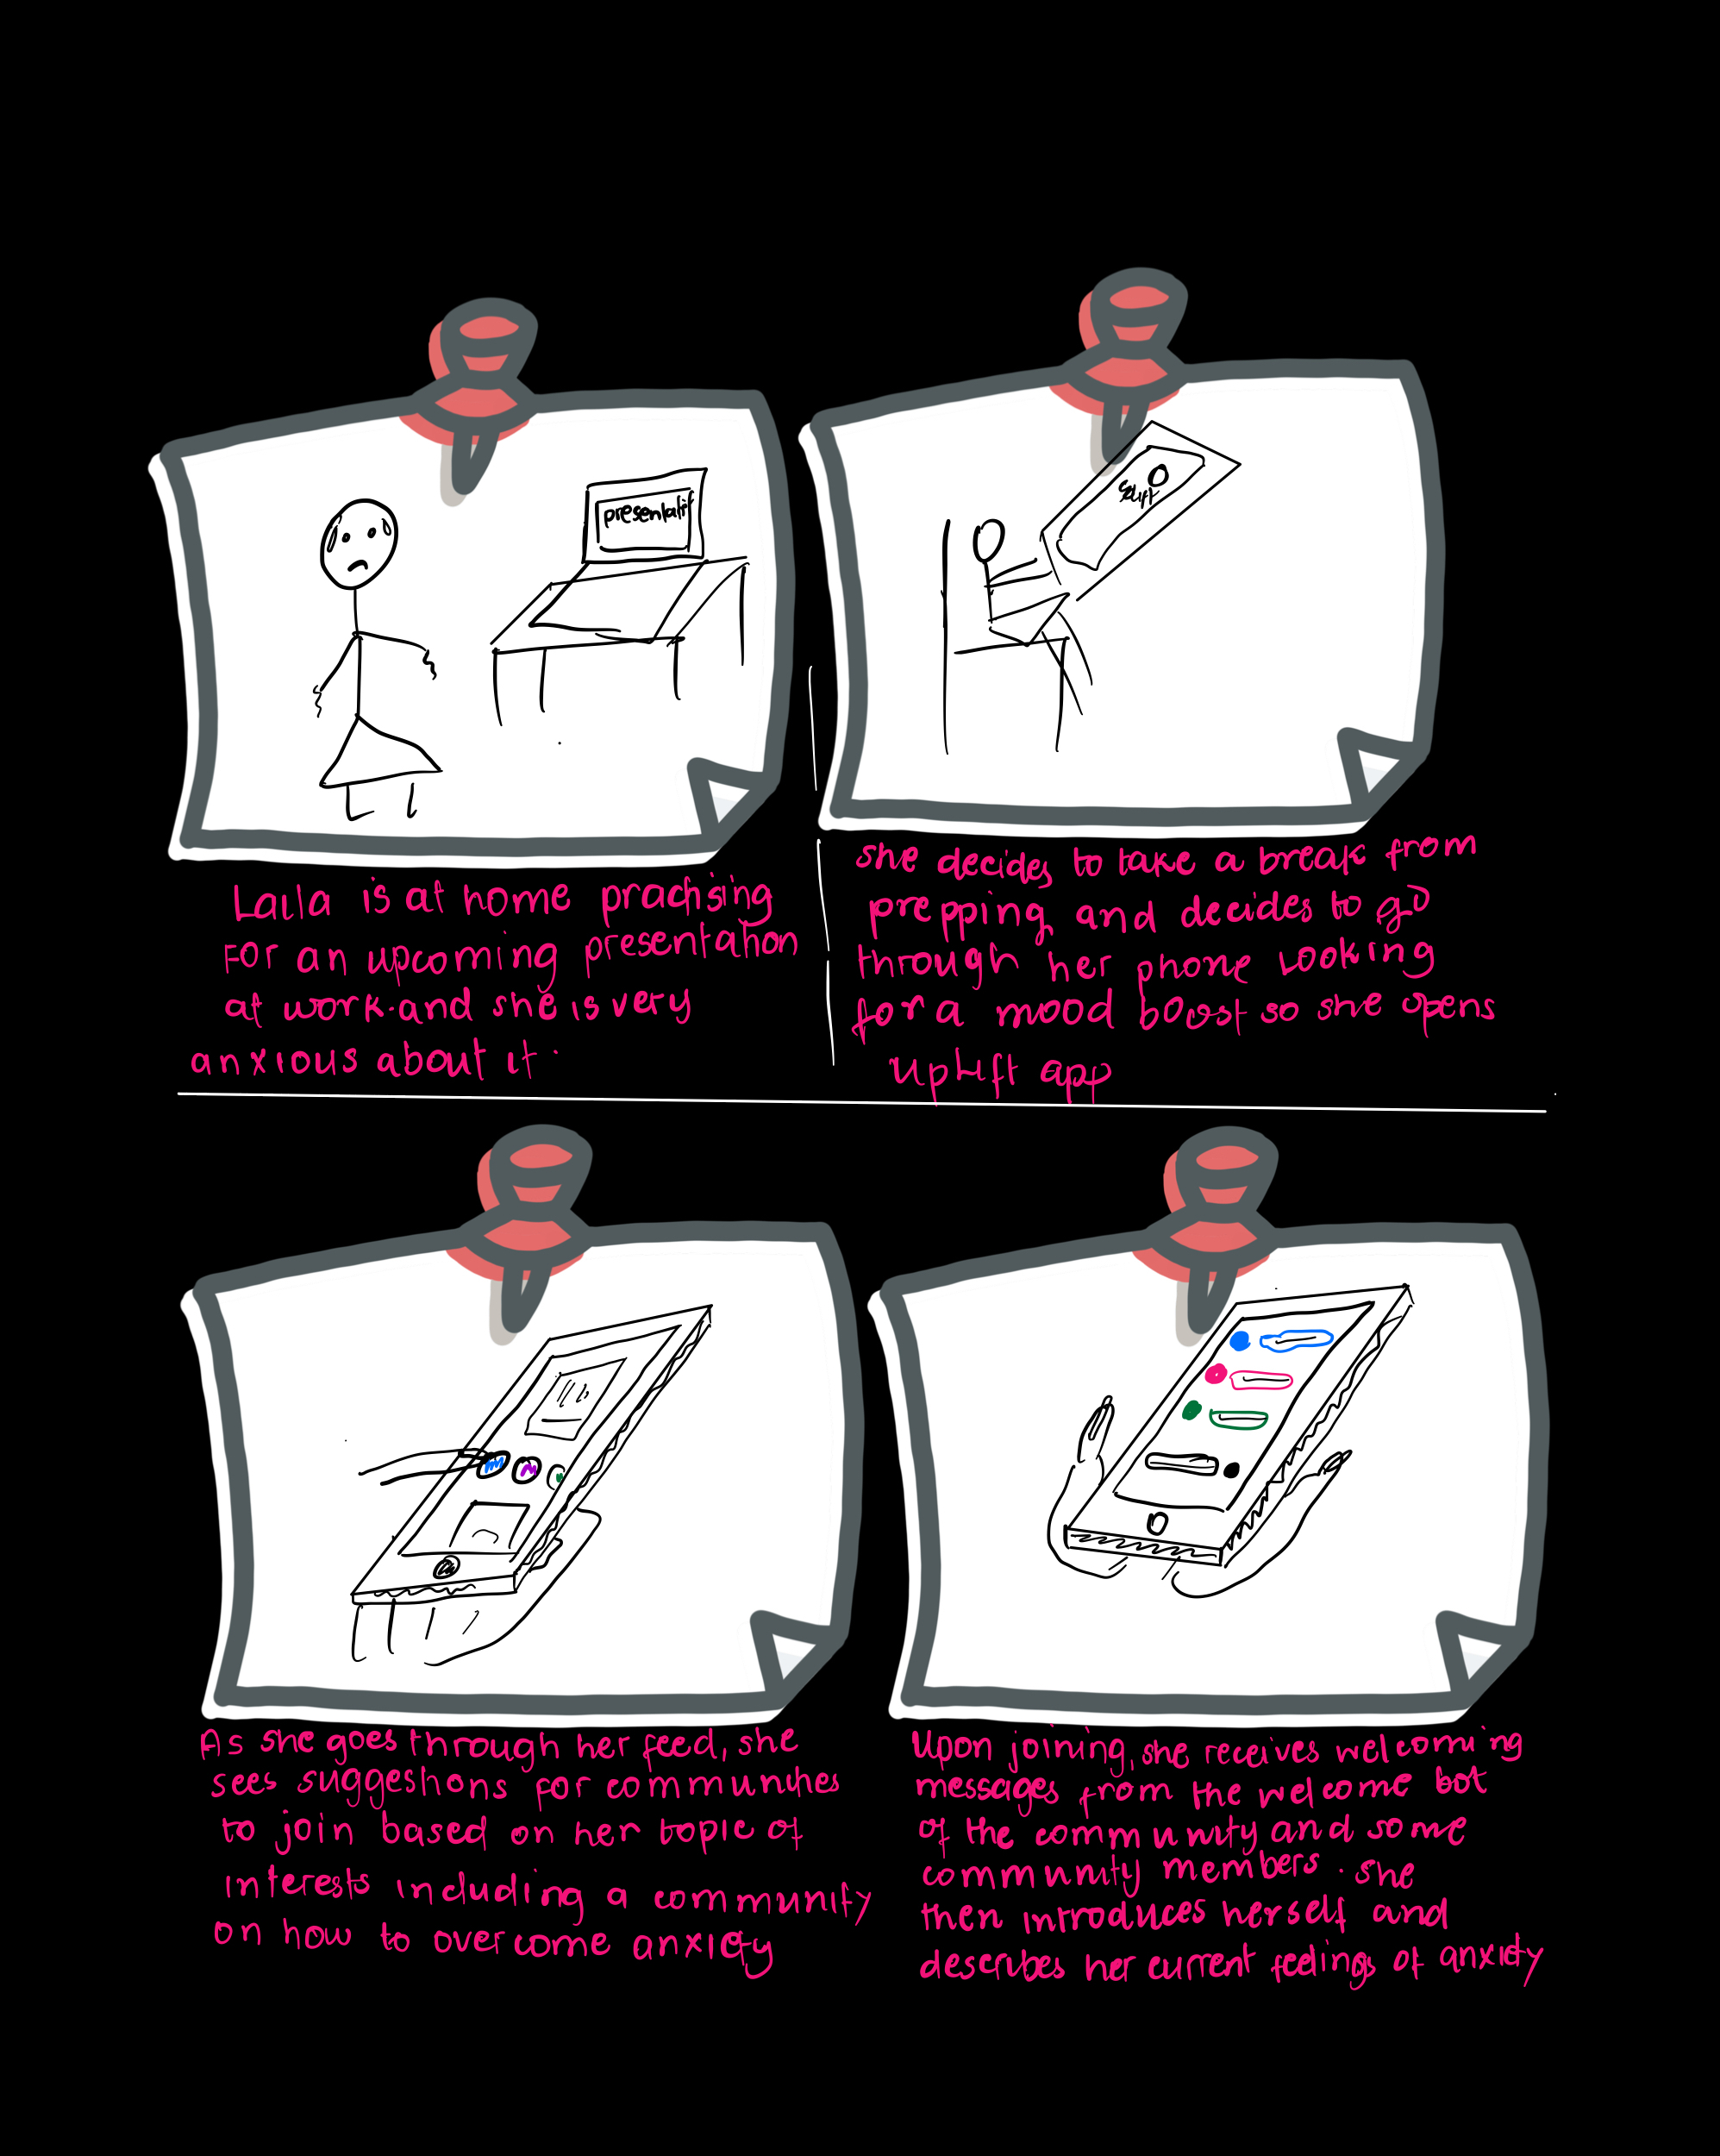 presentati
Laila is at home practising
For an upcoming presentation
at work.and she is very
anxious about it.
she decides to take a break from
prepping and decides to go
through her phone looking
for a mood boost so she opens
Uplift app
As she goes through her feed, she
sees suggestions for communities
to join based on her topic of
interests including a community
on how to overcome anxiety
Upon joining, she receives welcoming
messages from the welcome bot
of the community and some
community members. she
then introduces herself and
describes her current feelings of anxiety